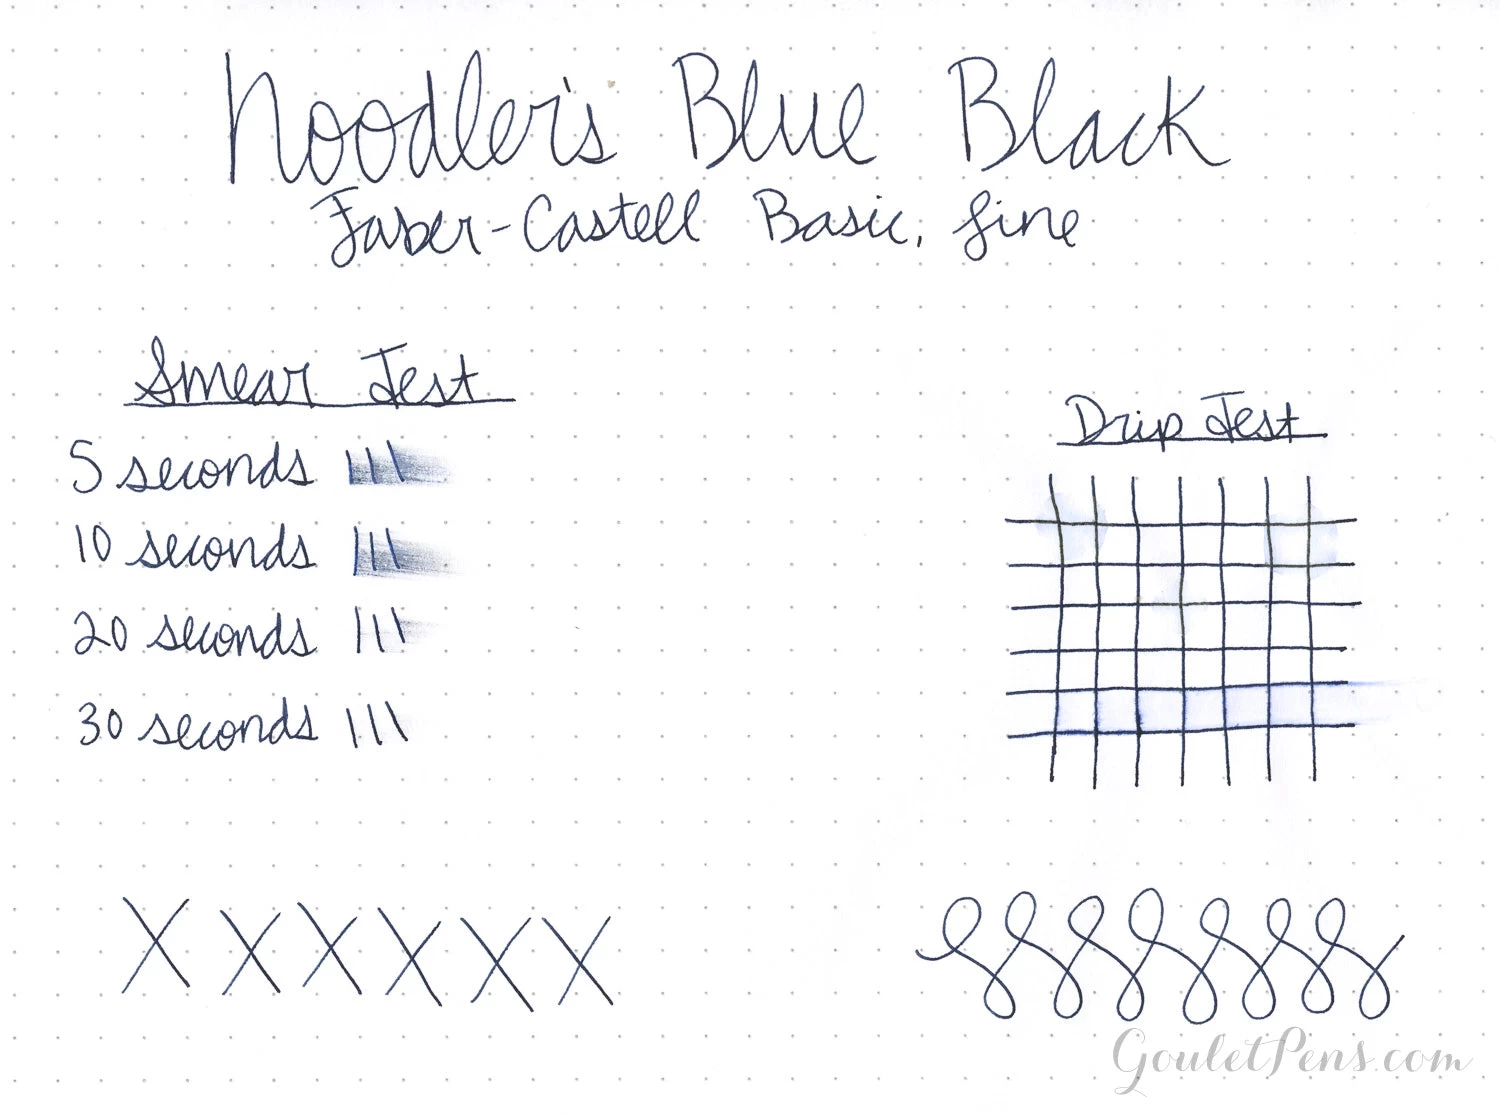 Noodler's Blue Black
Faber-Castell Basic, fine
Smear Test
5 seconds
10 seconds
20 seconds
30 seconds
Drip Test
GouletPens.com